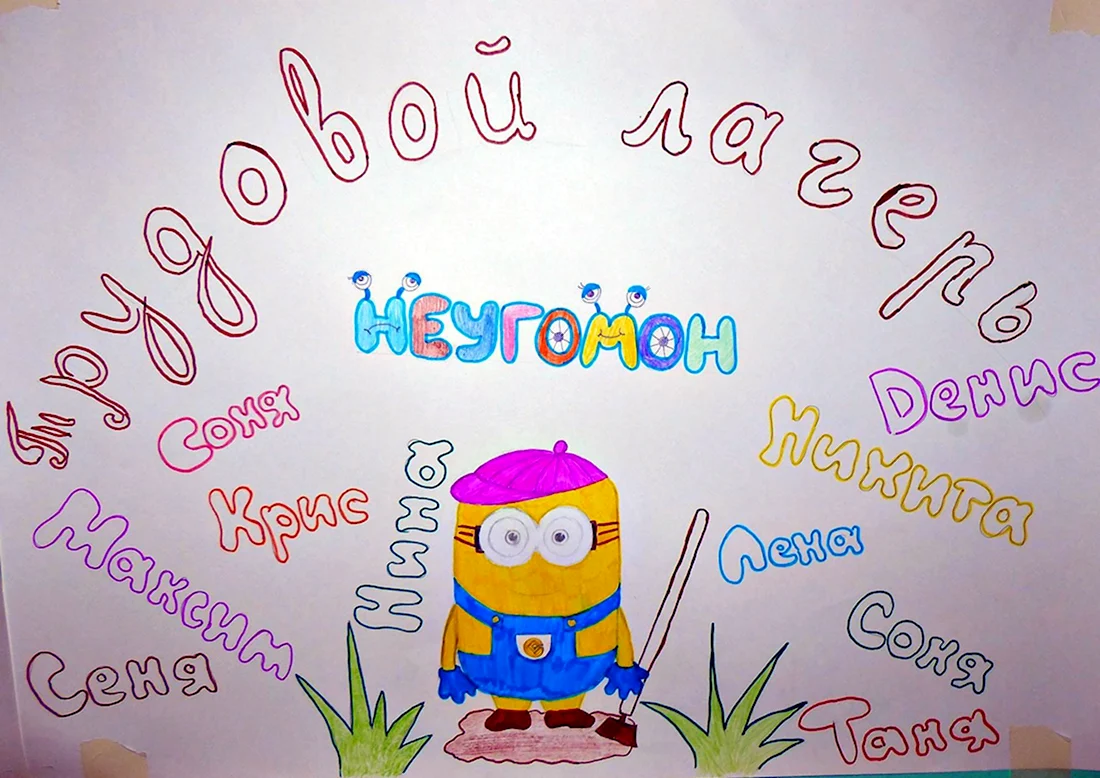 Трудовой лагерь
НЕУГОМОН
Соня
Крис
Максим
Сеня
Нина
Денис
Никита
Лена
Соня
Таня